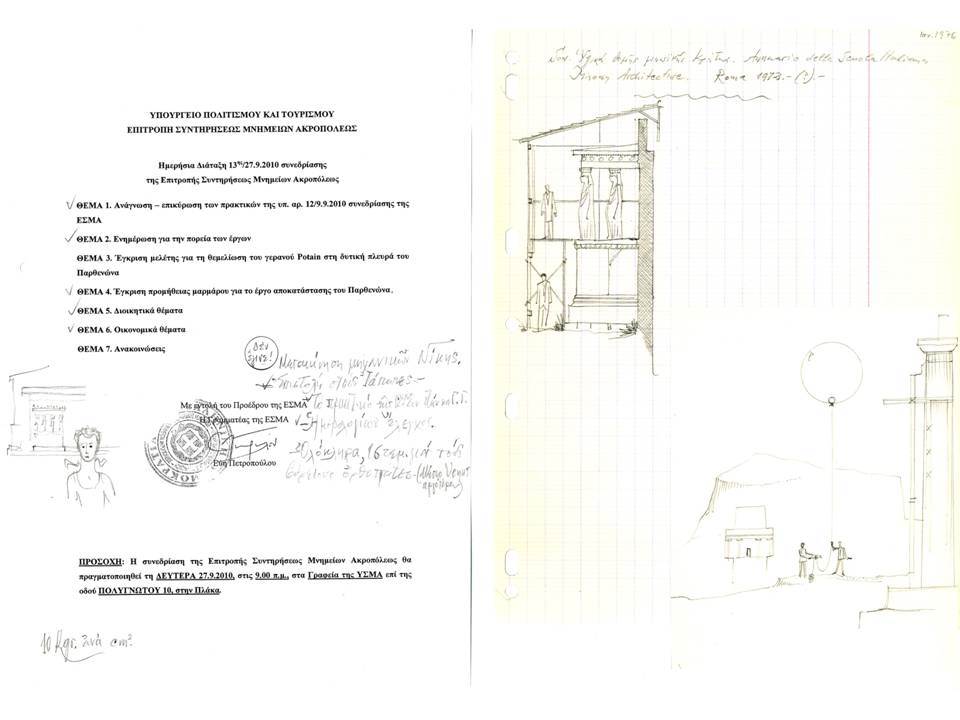 ΥΠΟΥΡΓΕΙΟ ΠΟΛΙΤΙΣΜΟΥ ΚΑΙ ΤΟΥΡΙΣΜΟΥ
ΕΠΙΤΡΟΠΗ ΣΥΝΤΗΡΗΣΕΩΣ ΜΝΗΜΕΙΩΝ ΑΚΡΟΠΟΛΕΩΣ
Ημερήσια Διάταξη 13ης/27.9.2010 συνεδρίασης
της Επιτροπής Συντηρήσεως Μνημείων Ακροπόλεως
ΘΕΜΑ 1. Ανάγνωση – επικύρωση των πρακτικών της υπ. αρ. 12/9.9.2010 συνεδρίασης της
ΕΣΜΑ
ΘΕΜΑ 2. Ενημέρωση για την πορεία των έργων
ΘΕΜΑ 3. Έγκριση μελέτης για τη θεμελίωση του γερανού Potain στη δυτική πλευρά του
Παρθενώνα
ΘΕΜΑ 4. Έγκριση προμήθειας μαρμάρου για το έργο αποκατάστασης του Παρθενώνα.
ΘΕΜΑ 5. Διοικητικά θέματα
ΘΕΜΑ 6. Οικονομικά θέματα
ΘΕΜΑ 7. Ανακοινώσεις
Μετακίνηση Νίκης.
Με εντολή του Προέδρου της ΕΣΜΑ
Η Γραμματέας της ΕΣΜΑ
Εύη Πετροπούλου
ΠΡΟΣΟΧΗ: Η συνεδρίαση της Επιτροπής Συντηρήσεως Μνημείων Ακροπόλεως θα
πραγματοποιηθεί τη ΔΕΥΤΕΡΑ 27.9.2010, στις 9.00 π.μ., στα Γραφεία της ΥΣΜΑ επί της
οδού ΠΟΛΥΓΝΩΤΟΥ 10, στην Πλάκα.
10 Kgr. ἀνά cm²
1976
Κρήτης. Annuario della Scuola Italiana
Minoan Architecture. Roma 1973.- (?).-